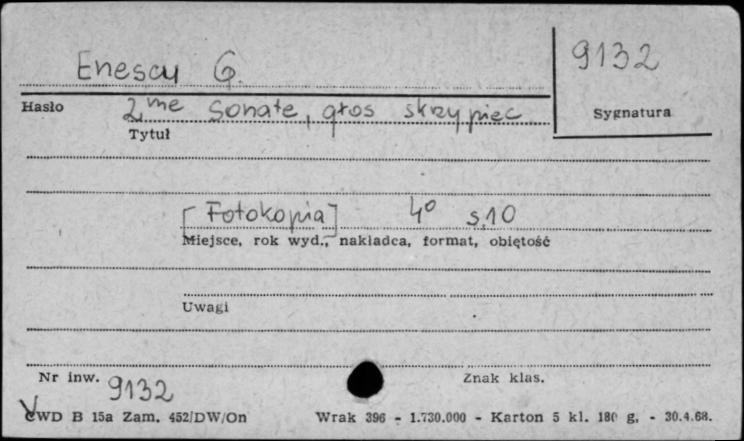 Enescu G.
9132
Hasło
2me Sonate, głos skrzypiec
Sygnatura
Tytuł
[Fotokopia] 4° s.10
Miejsce, rok wyd., nakładca, format, obiętość
Uwagi
Nr inw. 9132
Znak klas.
CWD B 15a Zam. 452/DW/On Wrak 396 - 1.730.000 - Karton 5 kl. 180 g, - 30.4.68.